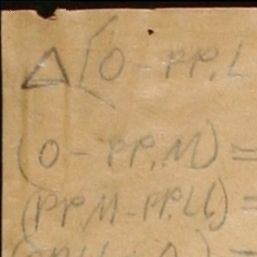 Δ[O - PP.L
(O - PP.M) =
(PP.M - PP.LL) =